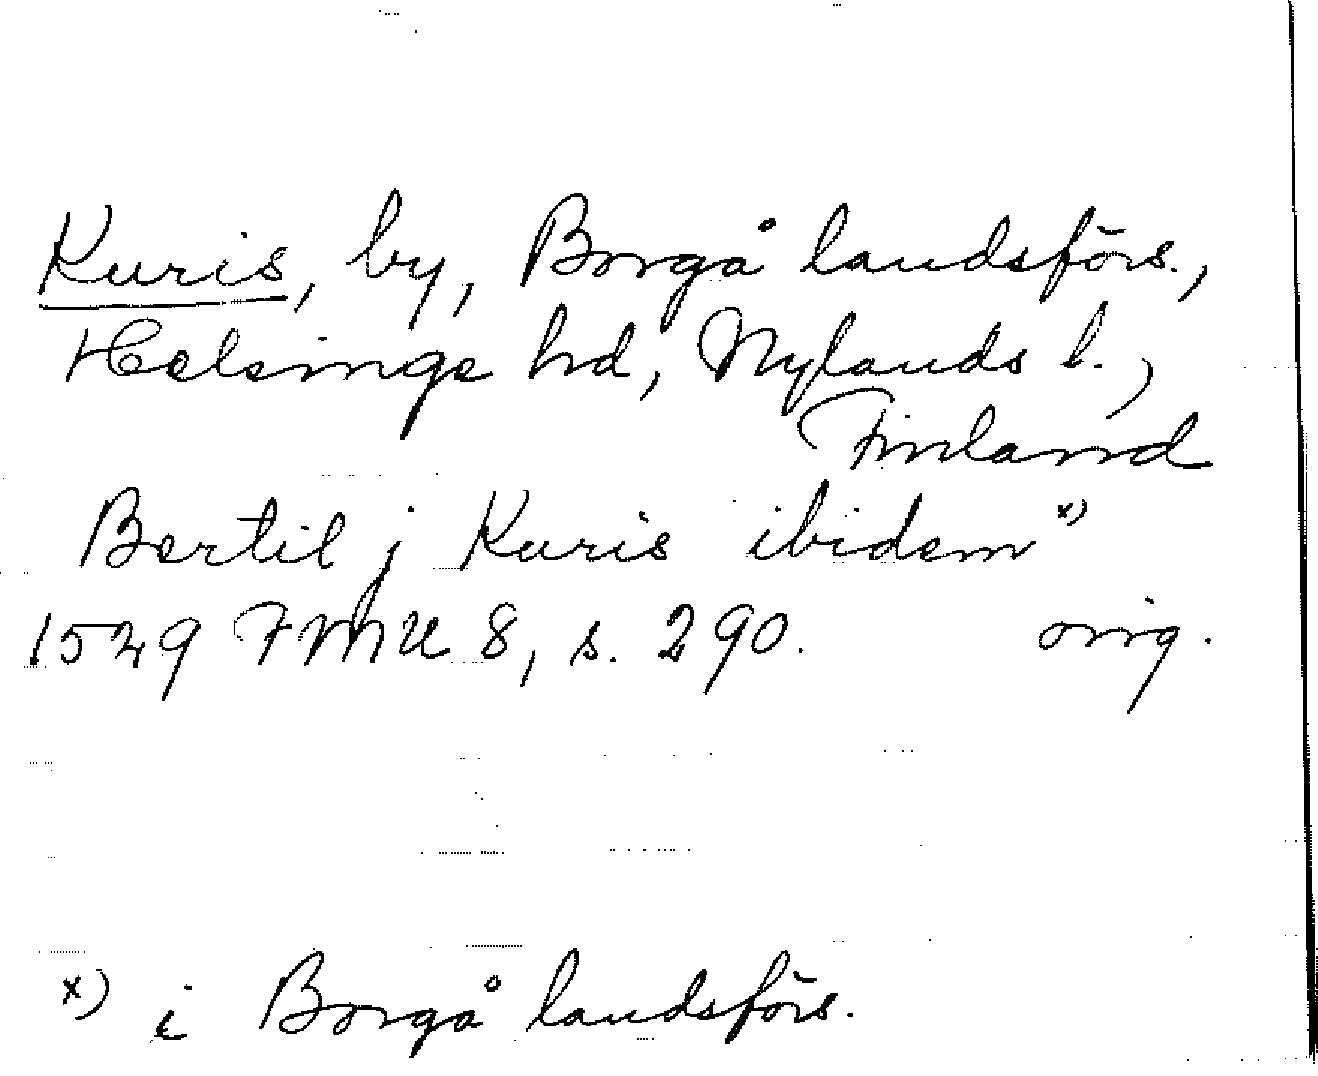 Kuris, by, Borgå landsförs.,
Helsinge hd, Nylands l.,
Finland
Bertil j Kuris ibidem x)
1529 FMU 8, s. 290. orig.
x) i Borgå landsförs.